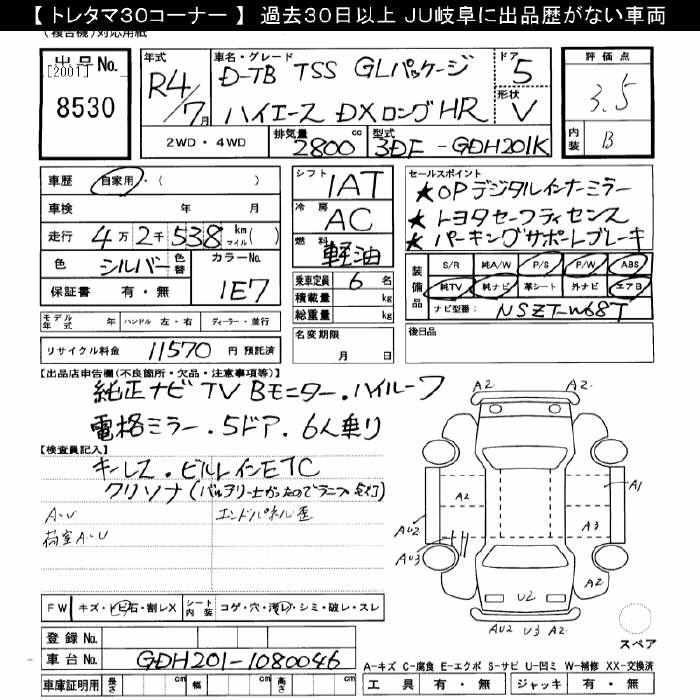 【 トレタマ30コーナー 】 過去30日以上 JU岐阜に出品歴がない車両
(複合機)対応用紙
出品No.
[2001]
8530
年式
R4/7月
車名・グレード
D-TB TSS GLパッケージ
ハイエース DXロング HR
ドア
5
形状
V
評価点
3.5
内装
B
2WD・4WD
排気量
2800 cc
型式
3DF-GDH201K
車歴
自家用・( )
車検
年 月
走行
4万2千538 kmマイル( )
色
シルバー
色替
カラーNo.
1E7
保証書
有・無
シフト
IAT
冷房
AC
燃料
軽油
乗車定員 6 名
積載量 kg
総重量 kg
セールスポイント
★OPデジタルインナーミラー
★トヨタセーフティセンス
★パーキングサポートブレーキ
装備品
S/R 純A/W P/S P/W ABS
純TV 純ナビ 革シート 外ナビ エアB
ナビ型番: NSZT-W68T
モデル年式 年 ハンドル 左・右 ディーラー・並行
リサイクル料金 11570 円 預託済
名変期限
月 日
後日品
【出品店申告欄(不良箇所・欠品・注意事項等)】
純正ナビ TV Bモニター.ハイルーフ
電格ミラー.5ドア.6人乗り
【検査員記入】
キーレス.ビルトインETC
クリソナ(
A・U
荷室A・U
エンドパネル歪
A2 A2
A2
A1
A2
A3
AU2
AU3
A2
U2
AU2 U3 A2
スペア
FW キズ・トビ石・割レX
シート内装 コゲ・穴・汚レ・シミ・破レ・スレ
登録No.
車台No. GDH201-1080046
車庫証明用 長さ cm 幅 cm 高さ cm
A-キズ C-腐食 E-エクボ S-サビ U-凹ミ W-補修 XX-交換済
工具 有・無 ジャッキ 有・無